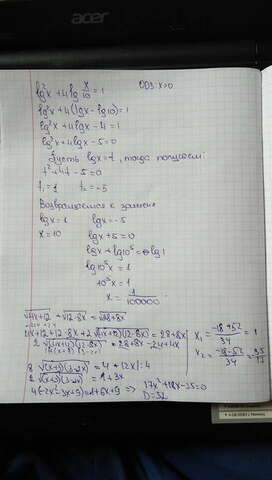 acer
lg²x + 4lg x/10 = 1 ОДЗ: x>0
lg²x + 4(lgx - lg10) = 1
lg²x + 4lgx - 4 = 1
lg²x + 4lgx - 5 = 0
Пусть lgx = t, тогда получаем:
t² + 4t - 5 = 0
t₁ = 1 t₂ = -5
Возвращаемся к замене
lgx = 1 lgx = -5
x = 10 lgx + 5 = 0
lgx + lg10⁵ = lg1
lg10⁵x = 1
10⁵x = 1
x = 1/100000
√4x+12 + √12-8x = √28+8x
4x+12+12-8x+2√(4x+12)(12-8x) = 28+8x
= 28+8x-24+4x
8√(x+3)(3-2x) = 4+12x |:4
2√(x+3)(3-2x) = 1+3x
4(-2x²-3x+9) = 1+6x+9 => 17x²+18x-35=0
x₁ = (-18+52)/34 = 1
x₂ = (-18-52)/34 =